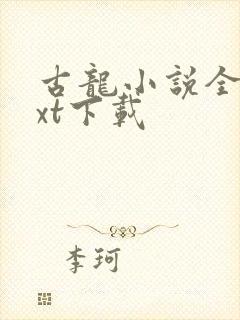 古龍小説全
xt下載
李珂